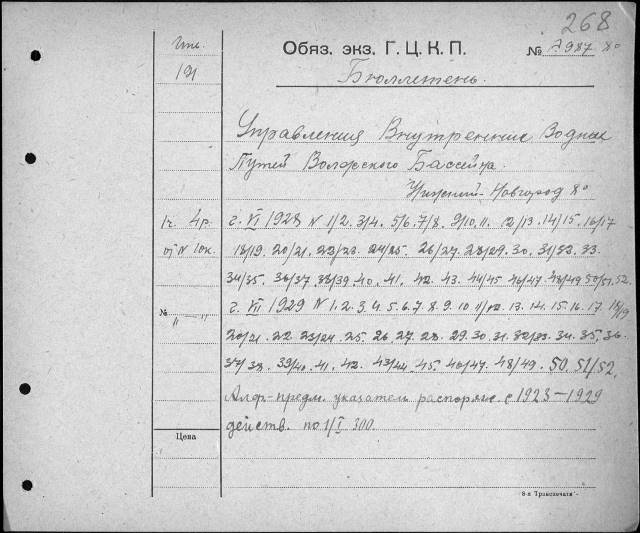 268
Обяз. экз. Г.Ц.К.П. № 987 8°
Бюллетень.
Управления Внутренние Водные
Путей Волжского Бассейна.
Нижний-Новгород 8°
1г. 4р. г. VI 1928 N 1/2. 3/4. 5/6. 7/8. 9/10. 11. 12/13. 14/15. 16/17
от N 1 ок. 18/19. 20/21. 22/23. 24/25. 26/27. 28/29. 30. 31/32. 33.
34/35. 36/37. 38/39. 40. 41. 42. 43. 44/45. 46/47. 48/49. 50/51. 52.
№ „ — " г. VII 1929 N 1. 2. 3. 4. 5. 6. 7. 8. 9. 10. 11/12. 13. 14. 15. 16. 17. 18/19
20/21. 22. 23/24. 25. 26. 27. 28. 29. 30. 31. 32/33. 34. 35. 36.
37/38. 39/40. 41. 42. 43/44. 45. 46/47. 48/49. 50. 51/52.
Алф-предм. указатель распоряж. с 1923-1929
Цена
действ. по 1/I 300.
8-я "Транспечати"